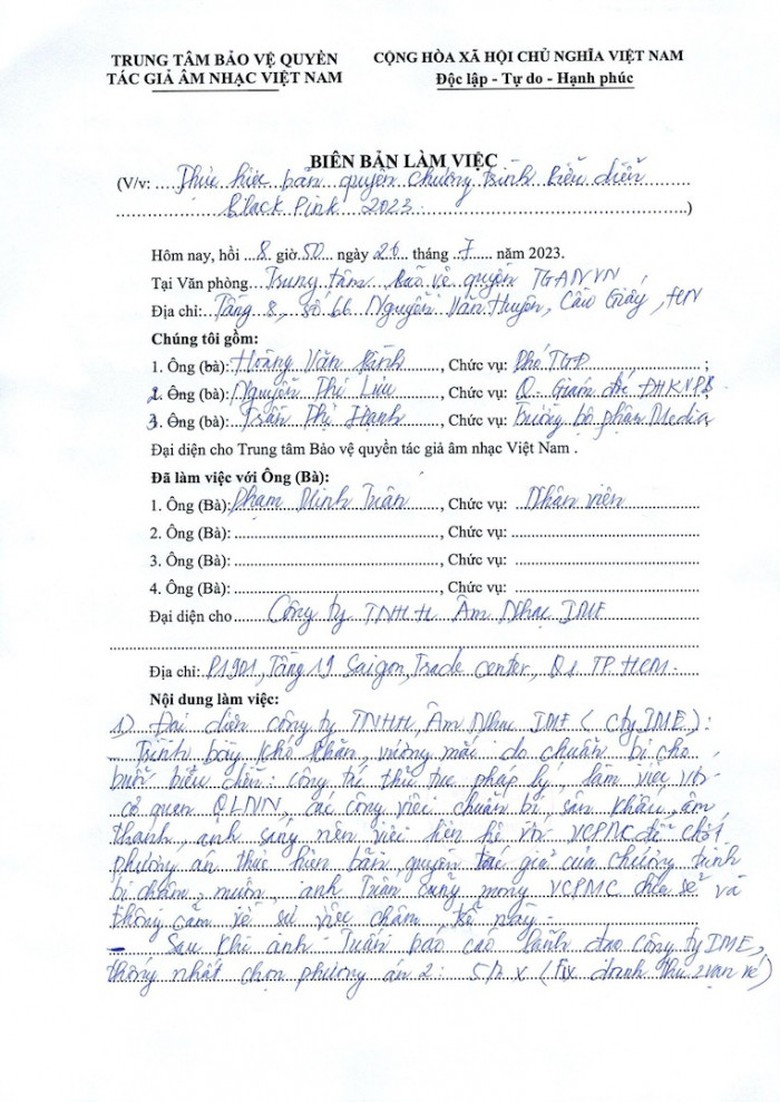 TRUNG TÂM BẢO VỆ QUYỀN
TÁC GIẢ ÂM NHẠC VIỆT NAM
CỘNG HÒA XÃ HỘI CHỦ NGHĨA VIỆT NAM
Độc lập - Tự do - Hạnh phúc
BIÊN BẢN LÀM VIỆC
(V/v: Thực hiện bản quyền chương trình biểu diễn
Black Pink 2023.)
Hôm nay, hồi 8 giờ 50 ngày 26 tháng 7 năm 2023.
Tại Văn phòng Trung tâm bảo vệ quyền TGANVN
Địa chỉ: Tầng 8, số 66 Nguyễn Văn Huyên, Cầu Giấy, HN
Chúng tôi gồm:
1. Ông (bà): Hoàng Văn, Chức vụ: Phó TGĐ;
2. Ông (bà): Nguyễn Thị Lưu, Chức vụ: Q. Giám đốc
3. Ông (bà): Trần Thị Hạnh, Chức vụ: Trưởng bộ phận Media
Đại diện cho Trung tâm Bảo vệ quyền tác giả âm nhạc Việt Nam .
Đã làm việc với Ông (Bà):
1. Ông (Bà): Phạm Minh Tuân, Chức vụ: Nhân viên
2. Ông (Bà):, Chức vụ:
3. Ông (Bà):, Chức vụ:
4. Ông (Bà):, Chức vụ:
Đại diện cho Công ty TNHH Âm Nhạc IME
Địa chỉ: P1901, Tầng 19 Saigon Trade center, Q1 TP. HCM.
Nội dung làm việc:
1) Đại diện công ty TNHH Âm Nhạc IME (cty IME):
Trình bày khó khăn, vướng mắc do chuẩn bị cho
buổi biểu diễn: công tác thủ tục pháp lý, làm việc với
cơ quan QLNN, các công việc chuẩn bị, sân khấu, âm
thanh, ánh sáng nên việc liên hệ với VCPMC để chốt
phương án thực hiện bản quyền tác giả của chương trình
bị chậm, muộn, anh Tuân cũng mong VCPMC chia sẻ và
thông cảm về sự việc chậm trễ này.
- Sau khi anh Tuân báo cáo lãnh đạo công ty IME,
thống nhất chọn phương án 2: 5% x (fix doanh thu vạn vé)